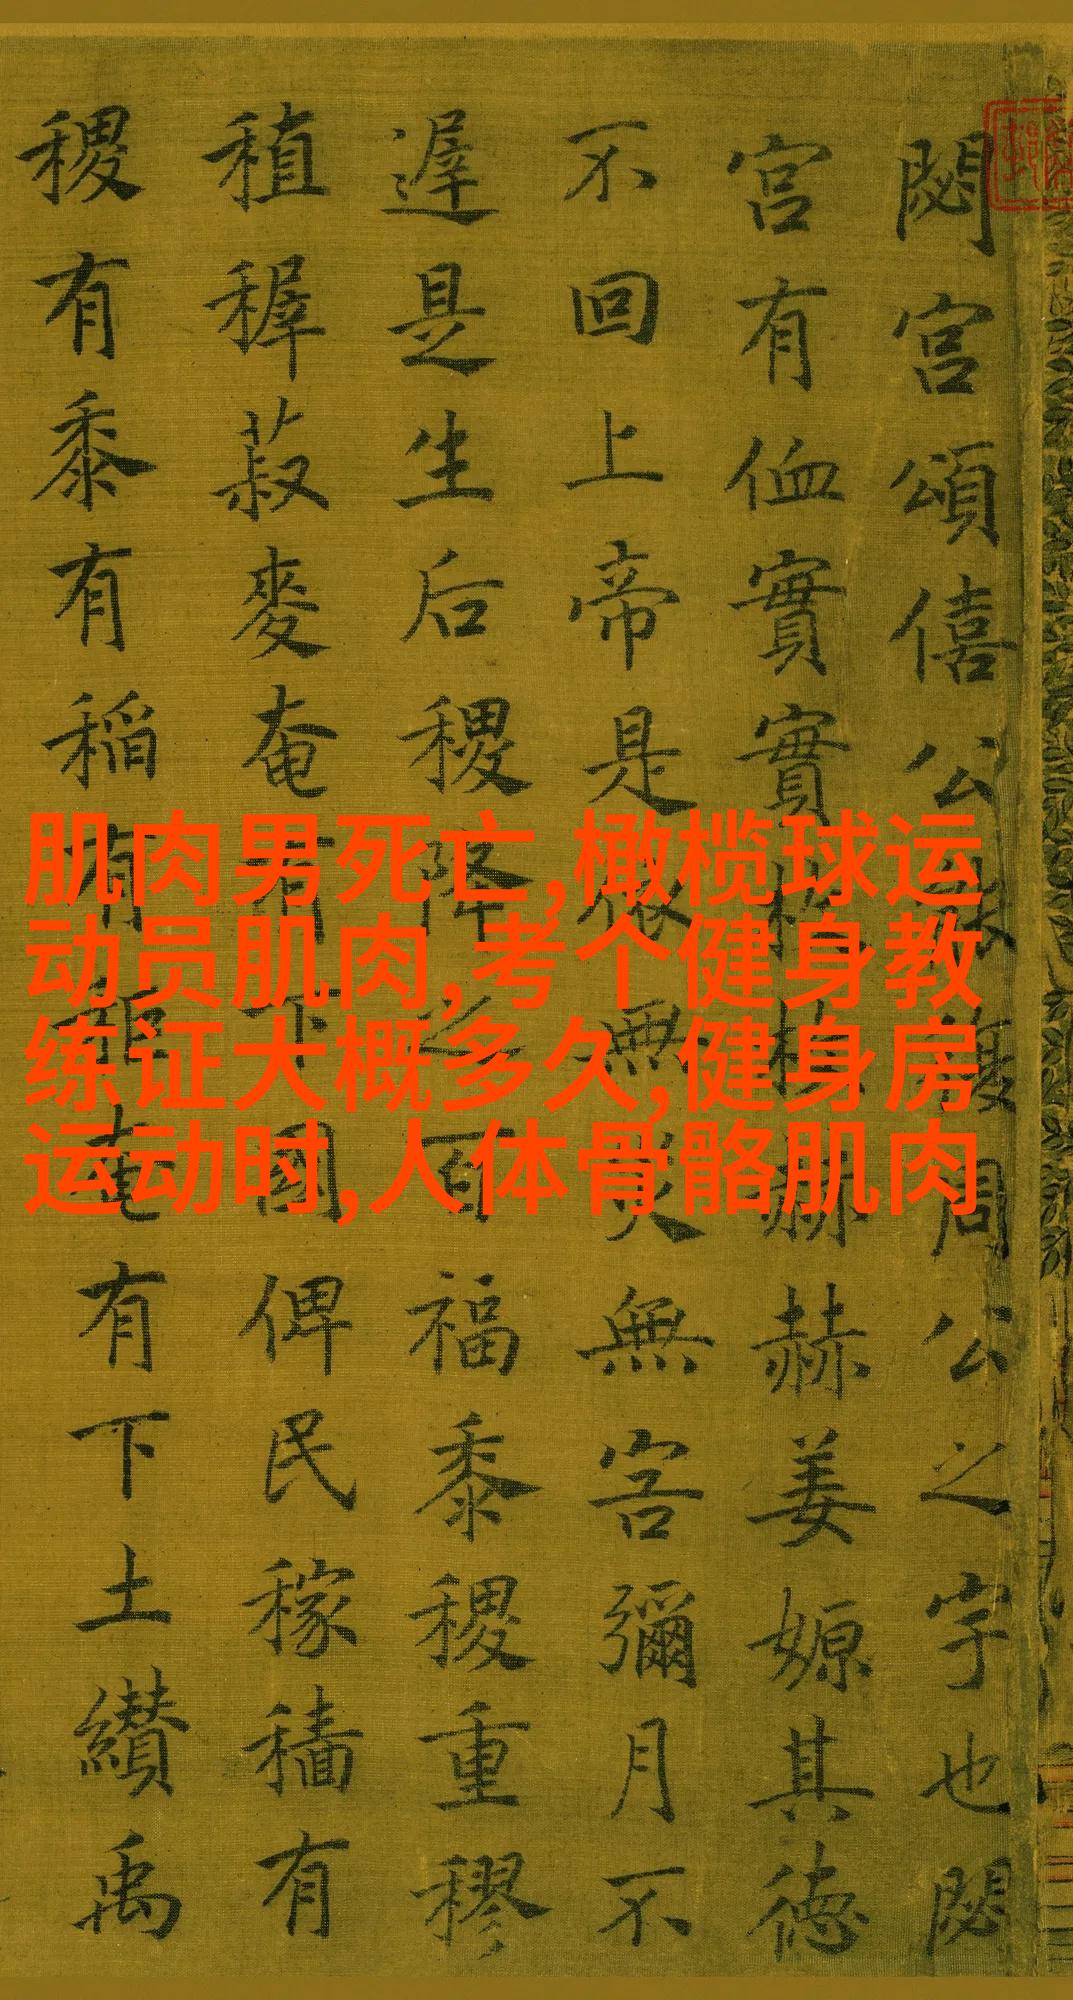 閟宫頌僖公能復周公之宇也閟
宫有侐實實枚枚赫赫姜嫄其德
不回上帝是依無灾無害彌月不
遲是生后稷降之百福黍稷重穋
稙稺菽麥奄有下國俾民稼穡有
稷有黍有稻有秬奄有下土纘禹
肌肉男死亡,橄榄球运
动员肌肉,考个健身教
练证大概多久,健身房
运动时,人体骨骼肌肉